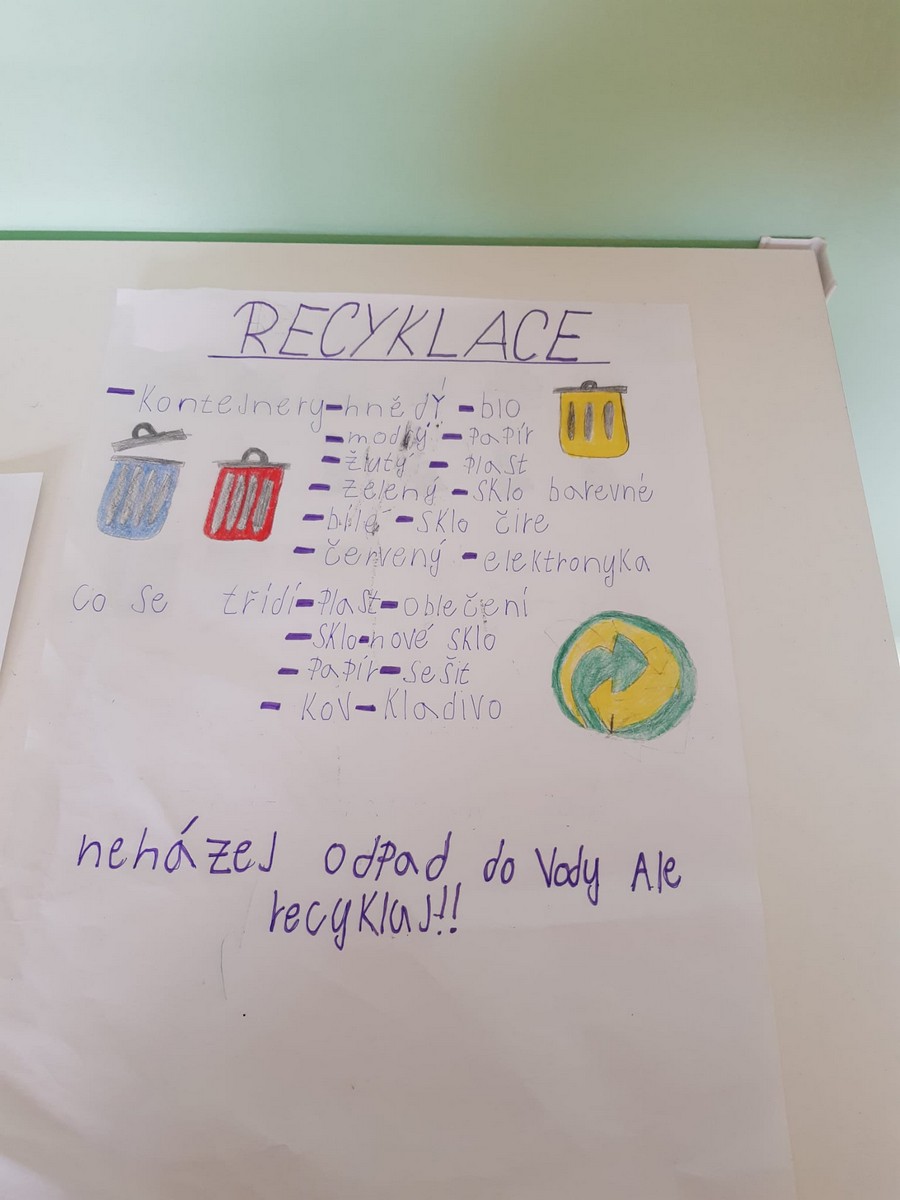 RECYKLACE
- Kontejnery - hnědý - bio
- modrý - papír
- žlutý - plast
- zelený - sklo barevné
- bílé - sklo čire
- červený - elektronyka
co se třídí - plast - oblečení
- sklo - nové sklo
- papír - sešit
- kov - kladivo
neházej odpad do Vody Ale
recykluj!!